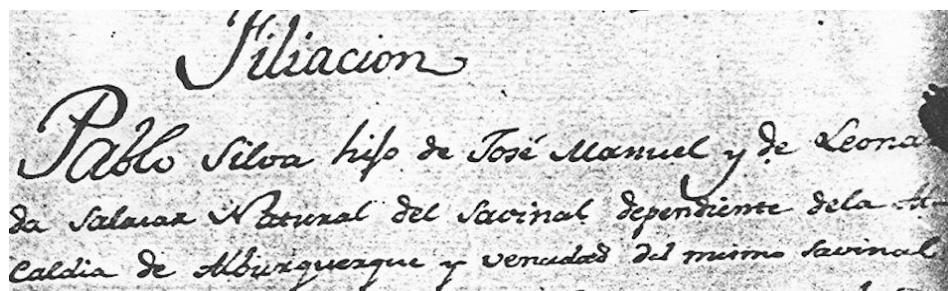 Filiacion
Pablo Silva hijo de José Manuel y de Leona
da Salazar Natural del Savinal dependiente dela Al
caldia de Alburquerque y vecindad del mismo Savinal